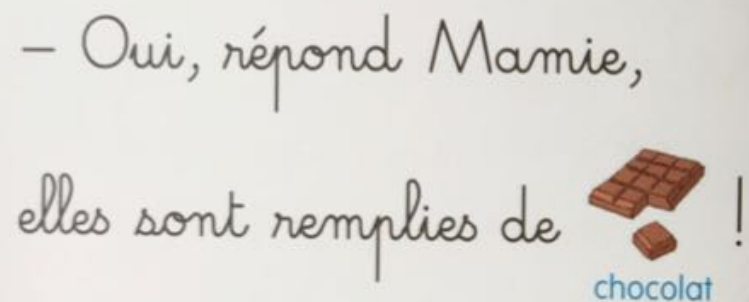 – Oui, répond Mamie,
elles sont remplies de !
chocolat